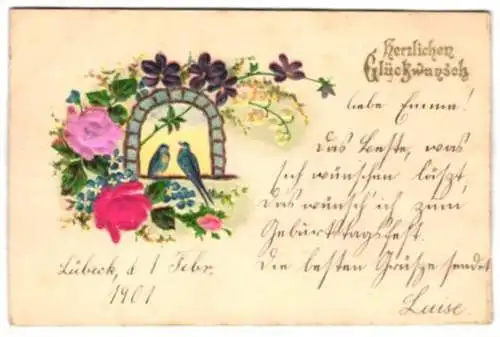 Herzlichen
Glückwunsch
liebe Emma!
Das Beste, was
sich wünschen läszt,
Das wünsch' ich zum
Geburtstagsfest.
Die besten Grüsze sendet
Luise.
Lübeck, d 1 Febr.
1901